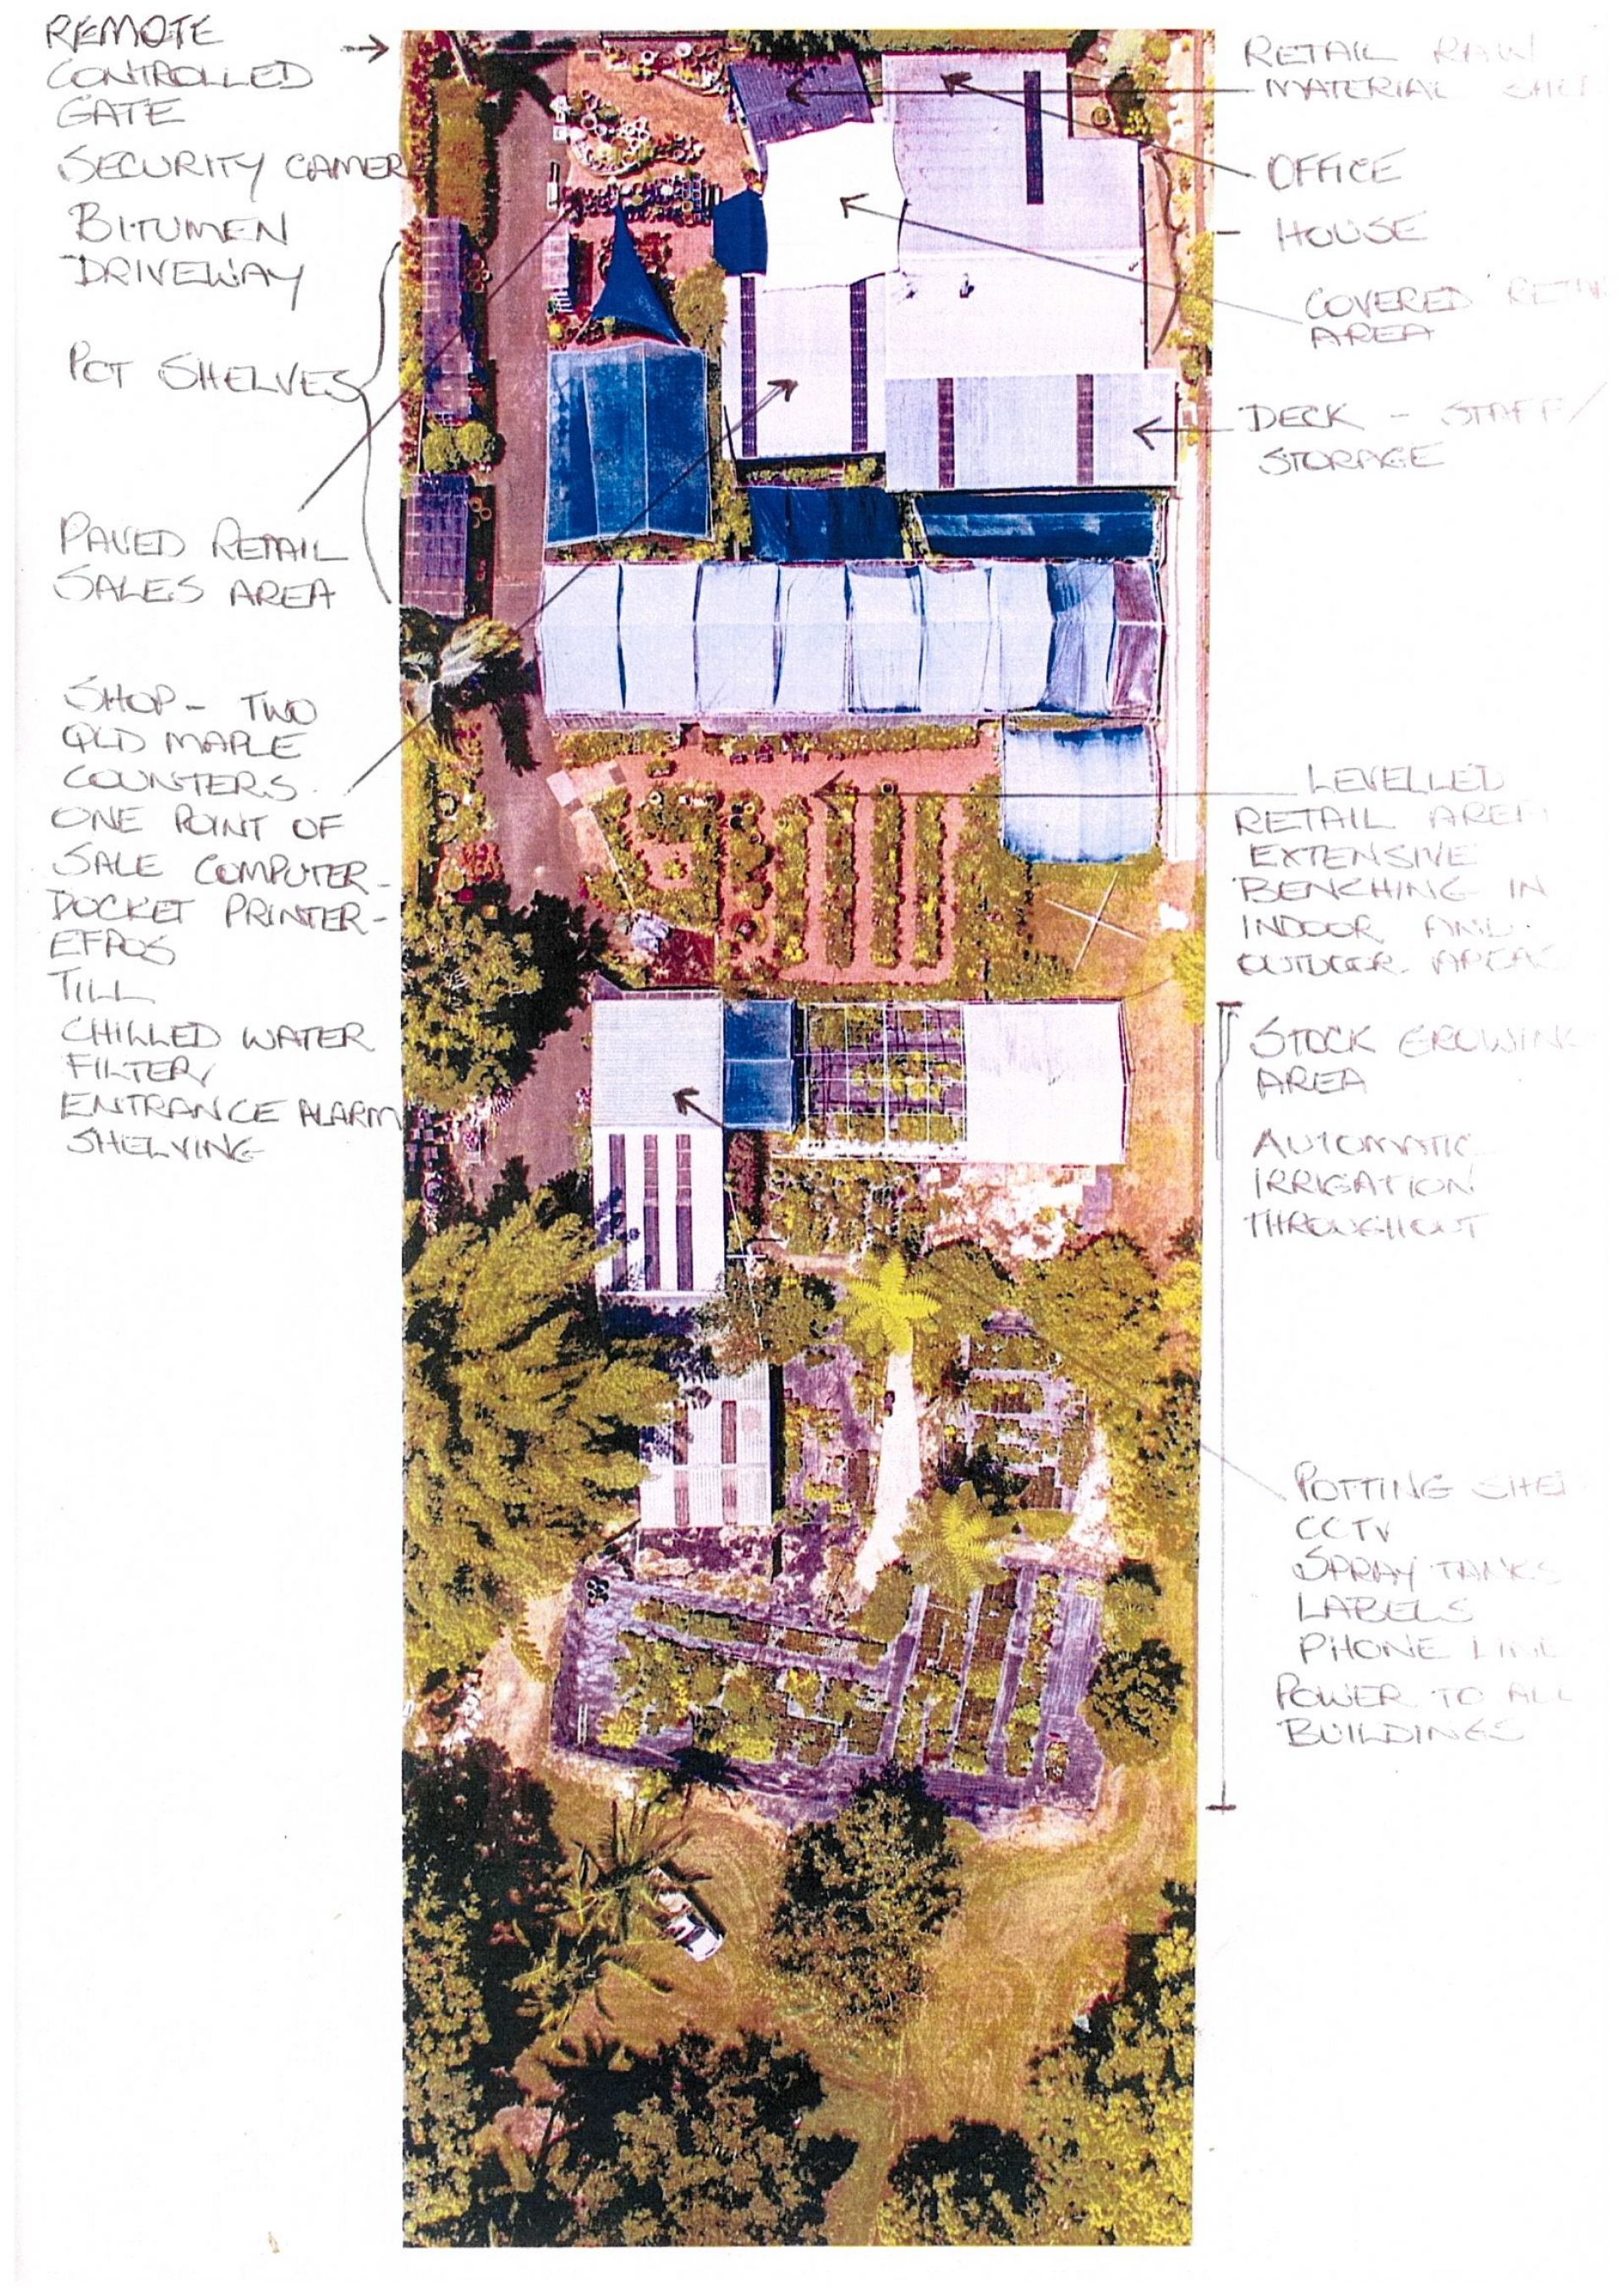 REMOTE
CONTROLLED
GATE
SECURITY CAMER
BITUMEN
DRIVEWAY
POT SHELVES
PAVED RETAIL
SALES AREA
SHOP - TWO
QLD MAPLE
COUNTERS.
ONE POINT OF
SALE COMPUTER -
DOCKET PRINTER -
EFPOS
TILL
CHILLED WATER
FILTER
ENTRANCE ALARM
SHELVING
RETAIL RAW
MATERIAL SHE
OFFICE
- HOUSE
COVERED RETA
AREA
DECK - STAFF/
STORAGE
LEVELLED
RETAIL AREA
EXTENSIVE
BENCHING IN
INDOOR AND
OUTDOOR AREAS
STOCK GROWING
AREA
AUTOMATIC
IRRIGATION
THROUGHOUT
POTTING SHE
CCTV
SPRAY TANKS
LABELS
PHONE LINE
POWER TO ALL
BUILDINGS